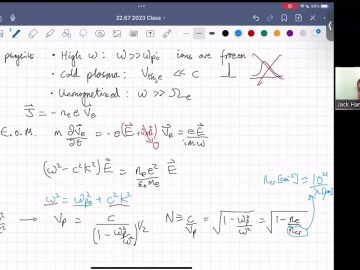 22.67 2023 Class
physics • High ω: ω >> ω_pi ions are frozen
• Cold plasma: V_th,e << c
• Unmagnetized: ω >> Ω_e
J = -n_e e V_e
E.O.M. m ∂V_e/∂t = -e(E + V×B) V_e = eE/imω
(ω² - c²k²) E = n_e e²/ε₀m_e E
ω² = ω_pe² + c²k²
n_cr [cm⁻³] = 10²¹
→ V_p = c/(1 - ω_p²/ω²)^1/2 N ≅ c/V_p = √(1 - ω_p²/ω²) = √(1 - n_e/n_cr)
Jack Har